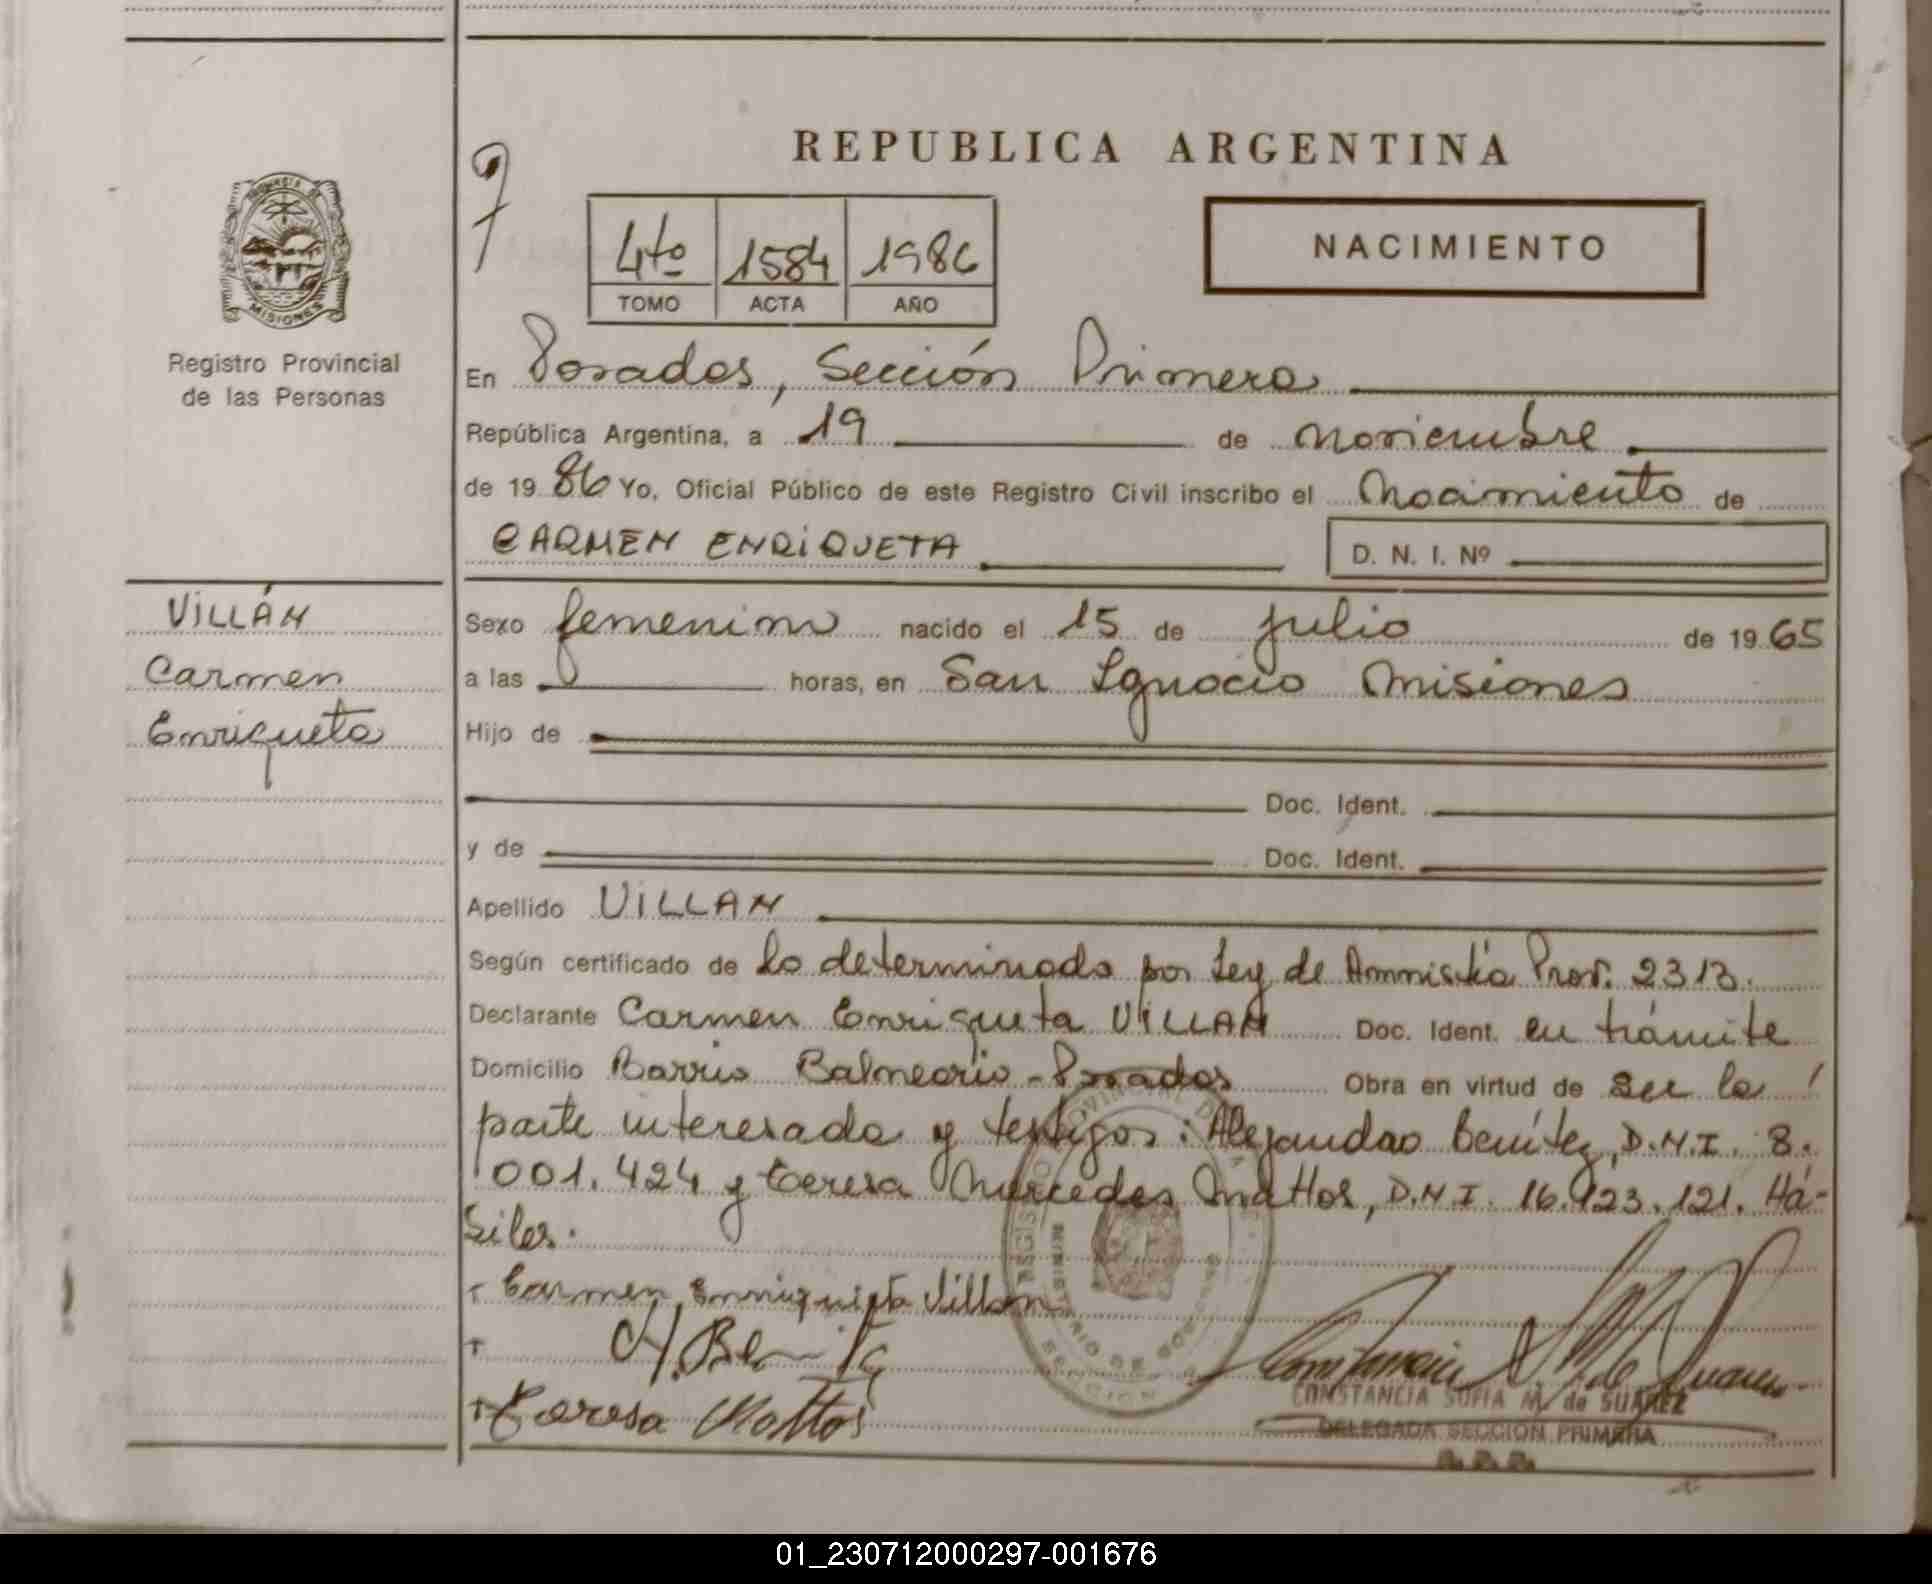 REPUBLICA ARGENTINA
NACIMIENTO
4to 1584 1986
TOMO ACTA AÑO
PROVINCIA DE MISIONES
Registro Provincial
de las Personas
En Posadas, Sección Primera
República Argentina, a 19 de noviembre
de 1986 Yo, Oficial Público de este Registro Civil inscribo el Nacimiento de
CARMEN ENRIQUETA D. N. I. Nº
VILLÁN
Carmen
Enriqueta
Sexo femenino nacido el 15 de julio de 1965
a las horas, en San Ignacio Misiones
Hijo de
Doc. Ident.
y de Doc. Ident.
Apellido VILLAN
Según certificado de lo determinado por Ley de Amnistía Prov. 2313.
Declarante Carmen Enriqueta VILLAN Doc. Ident. en trámite
Domicilio Barrio Balneario - Posadas Obra en virtud de ser la
parte interesada y testigos: Alejandro Benítez, D.N.I. 8.
001.424 y Teresa Mercedes Mattos, D.N.I. 16.923.121. Há-
biles.
Carmen Enriquieta Villan
A. Benitez
Teresa Mattos
CONSTANCIA SOFIA M. de SUAREZ
DELEGADA SECCION PRIMERA
01_230712000297-001676